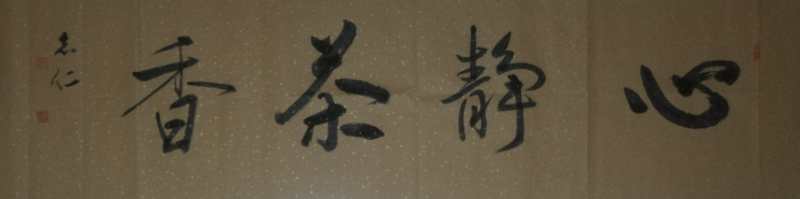 心静茶香
志仁